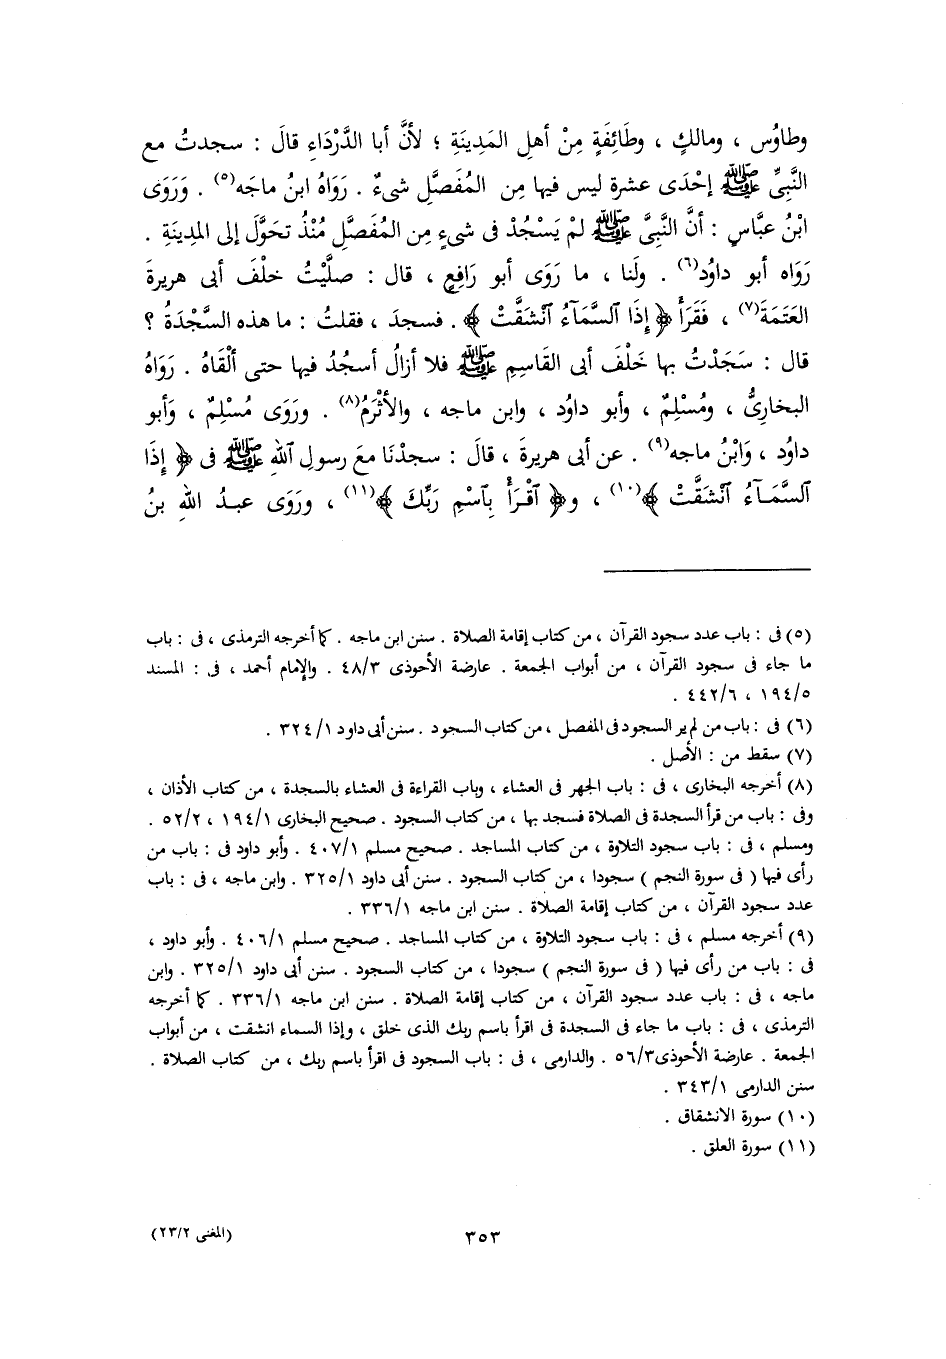 وطاوُس ، ومالكٍ ، وطَائِفَةٍ مِنْ أهلِ المَدِينَةِ ؛ لأنَّ أبا الدَّرْدَاءِ قالَ : سجدتُ مع
النَّبِىِّ ﷺ إحْدَى عشرة ليس فيها مِن المُفَصَّلِ شىءٌ . رَوَاهُ ابنُ ماجَه(٥) . وَرَوَى
ابْنُ عبَّاسٍ : أنَّ النَّبِىَّ ﷺ لمْ يَسْجُدْ فى شىءٍ مِن المُفَصَّلِ مُنْذُ تحَوَّلَ إلى المدِينَةِ .
رَوَاه أبو داوُد(٦) . ولَنا ، ما رَوَى أبو رَافِعٍ ، قال : صلَّيْتُ خلْفَ أبى هريرةَ
العَتَمَةَ(٧) ، فَقَرَأَ ﴿ إِذَا ٱلسَّمَآءُ ٱنْشَقَّتْ ﴾ . فسجدَ ، فقلتُ : ما هذه السَّجْدَةُ ؟
قال : سَجَدْتُ بها خَلْفَ أبى القَاسِمِ ﷺ فلا أزالُ أسجُدُ فيها حتى ألْقَاهُ . رَوَاهُ
البخارِىُّ ، ومُسْلِمٌ ، وأبو داوُد ، وابن ماجه ، والأثْرَمُ(٨) . ورَوَى مُسْلِمٌ ، وَأبو
داوُد ، وَابْنُ ماجه(٩) . عن أبى هريرةَ ، قالَ : سجدْنَا معَ رسولِ ٱللهِ ﷺ فى ﴿ إِذَا
ٱلسَّمَآءُ ٱنْشَقَّتْ ﴾(١٠) ، و﴿ ٱقْرَأْ بِٱسْمِ رَبِّكَ ﴾(١١) ، ورَوَى عبدُ اللهِ بنُ
(٥) فى : باب عدد سجود القرآن ، من كتاب إقامة الصلاة . سنن ابن ماجه . كما أخرجه الترمذى ، فى : باب
ما جاء فى سجود القرآن ، من أبواب الجمعة . عارضة الأحوذى ٤٨/٣ . والإمام أحمد ، فى : المسند
١٩٤/٥ ، ٤٤٢/٦ .
(٦) فى : باب من لم ير السجود فى المفصل ، من كتاب السجود . سنن أبى داود ٣٢٤/١ .
(٧) سقط من : الأصل .
(٨) أخرجه البخارى ، فى : باب الجهر فى العشاء ، وباب القراءة فى العشاء بالسجدة ، من كتاب الأذان ،
وفى : باب من قرأ السجدة فى الصلاة فسجد بها ، من كتاب السجود . صحيح البخارى ١٩٤/١ ، ٥٢/٢ .
ومسلم ، فى : باب سجود التلاوة ، من كتاب المساجد . صحيح مسلم ٤٠٧/١ . وأبو داود فى : باب من
رأى فيها ( فى سورة النجم ) سجودا ، من كتاب السجود . سنن أبى داود ٣٢٥/١ . وابن ماجه ، فى : باب
عدد سجود القرآن ، من كتاب إقامة الصلاة . سنن ابن ماجه ٣٣٦/١ .
(٩) أخرجه مسلم ، فى : باب سجود التلاوة ، من كتاب المساجد . صحيح مسلم ٤٠٦/١ . وأبو داود ،
فى : باب من رأى فيها ( فى سورة النجم ) سجودا ، من كتاب السجود . سنن أبى داود ٣٢٥/١ . وابن
ماجه ، فى : باب عدد سجود القرآن ، من كتاب إقامة الصلاة . سنن ابن ماجه ٣٣٦/١ . كما أخرجه
الترمذى ، فى : باب ما جاء فى السجدة فى اقرأ باسم ربك الذى خلق ، وإذا السماء انشقت ، من أبواب
الجمعة . عارضة الأحوذى ٥٦/٣ . والدارمى ، فى : باب السجود فى اقرأ باسم ربك ، من كتاب الصلاة .
سنن الدارمى ٣٤٣/١ .
(١٠) سورة الانشقاق .
(١١) سورة العلق .
٣٥٣
(المغنى ٢٣/٢)